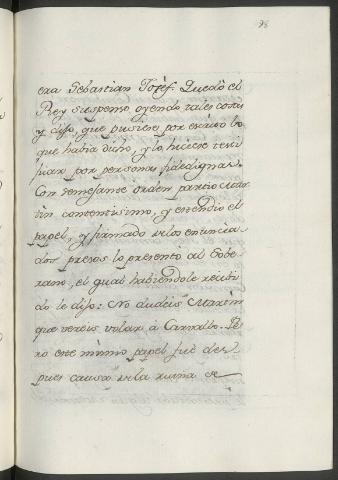 98
era Sebastian Josef. Quedó el
Rey suspenso oyendo tales cosas
y dijo, que pusiese por escrito lo
que habia dicho, y lo hiciese testi
ficar por personas fidedignas.
Con semejante orden partio Mar
tin contentisimo, y estendio el
papel, y firmado de los enuncia-
dos presos lo presentó al Sobe-
rano, el qual habiendole recibi
do le dijo: No dudeis Martin
que vereis volar à Carvallo. Pe
ro este mismo papel fué des
pues causa de la ruina de